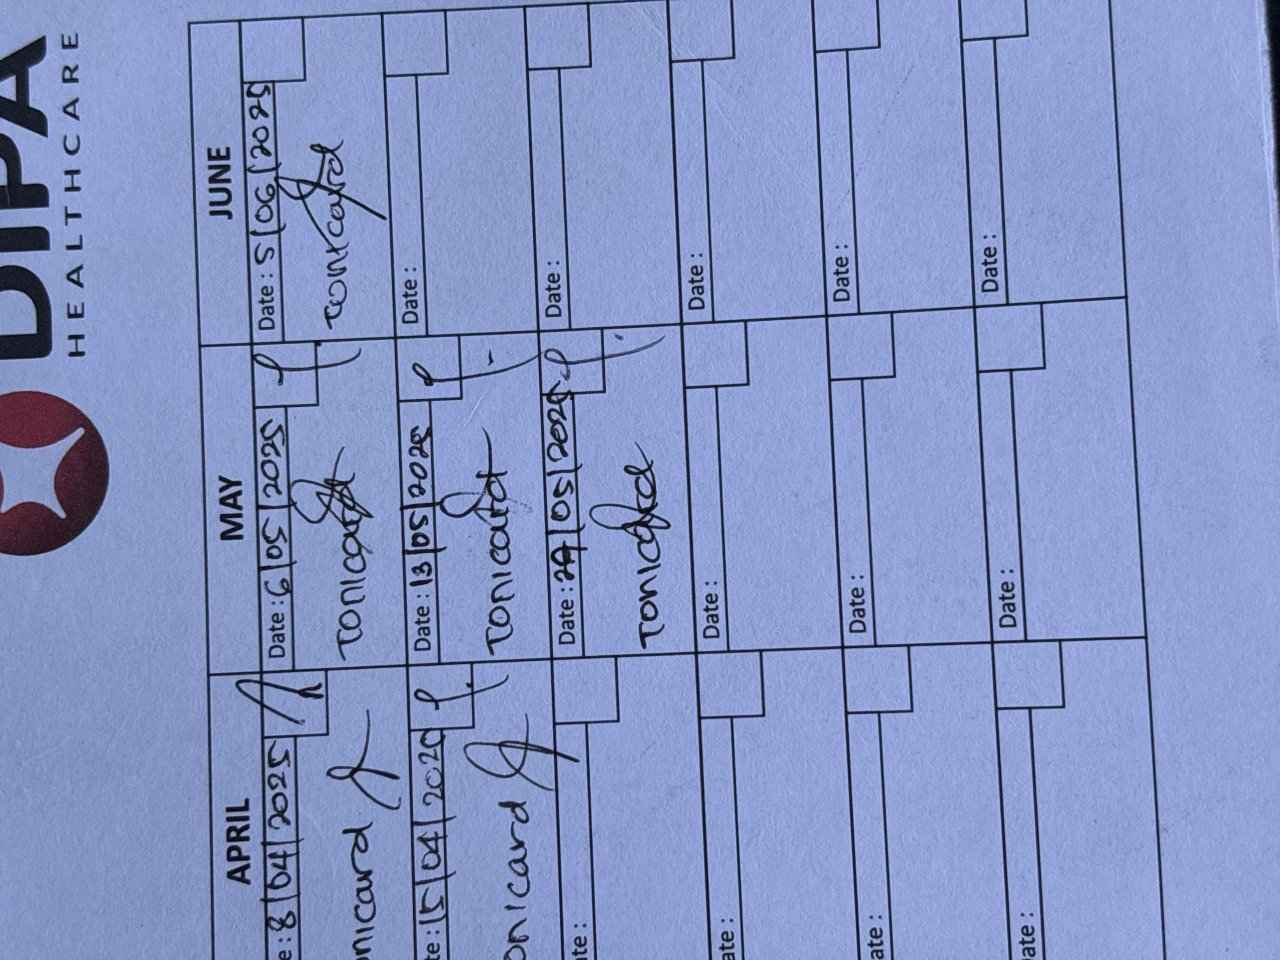 DIPA
HEALTHCARE
APRIL
e : 8/04/2025
onicard
te : 15/04/2025
onicard
te :
ate :
ate :
Date :
MAY
Date : 6/05/2025
Tonicard
Date : 13/05/2025
Tonicard
Date : 29/05/2025
Tonicard
Date :
Date :
Date :
JUNE
Date : 5/06/2025
Tonicard
Date :
Date :
Date :
Date :
Date :